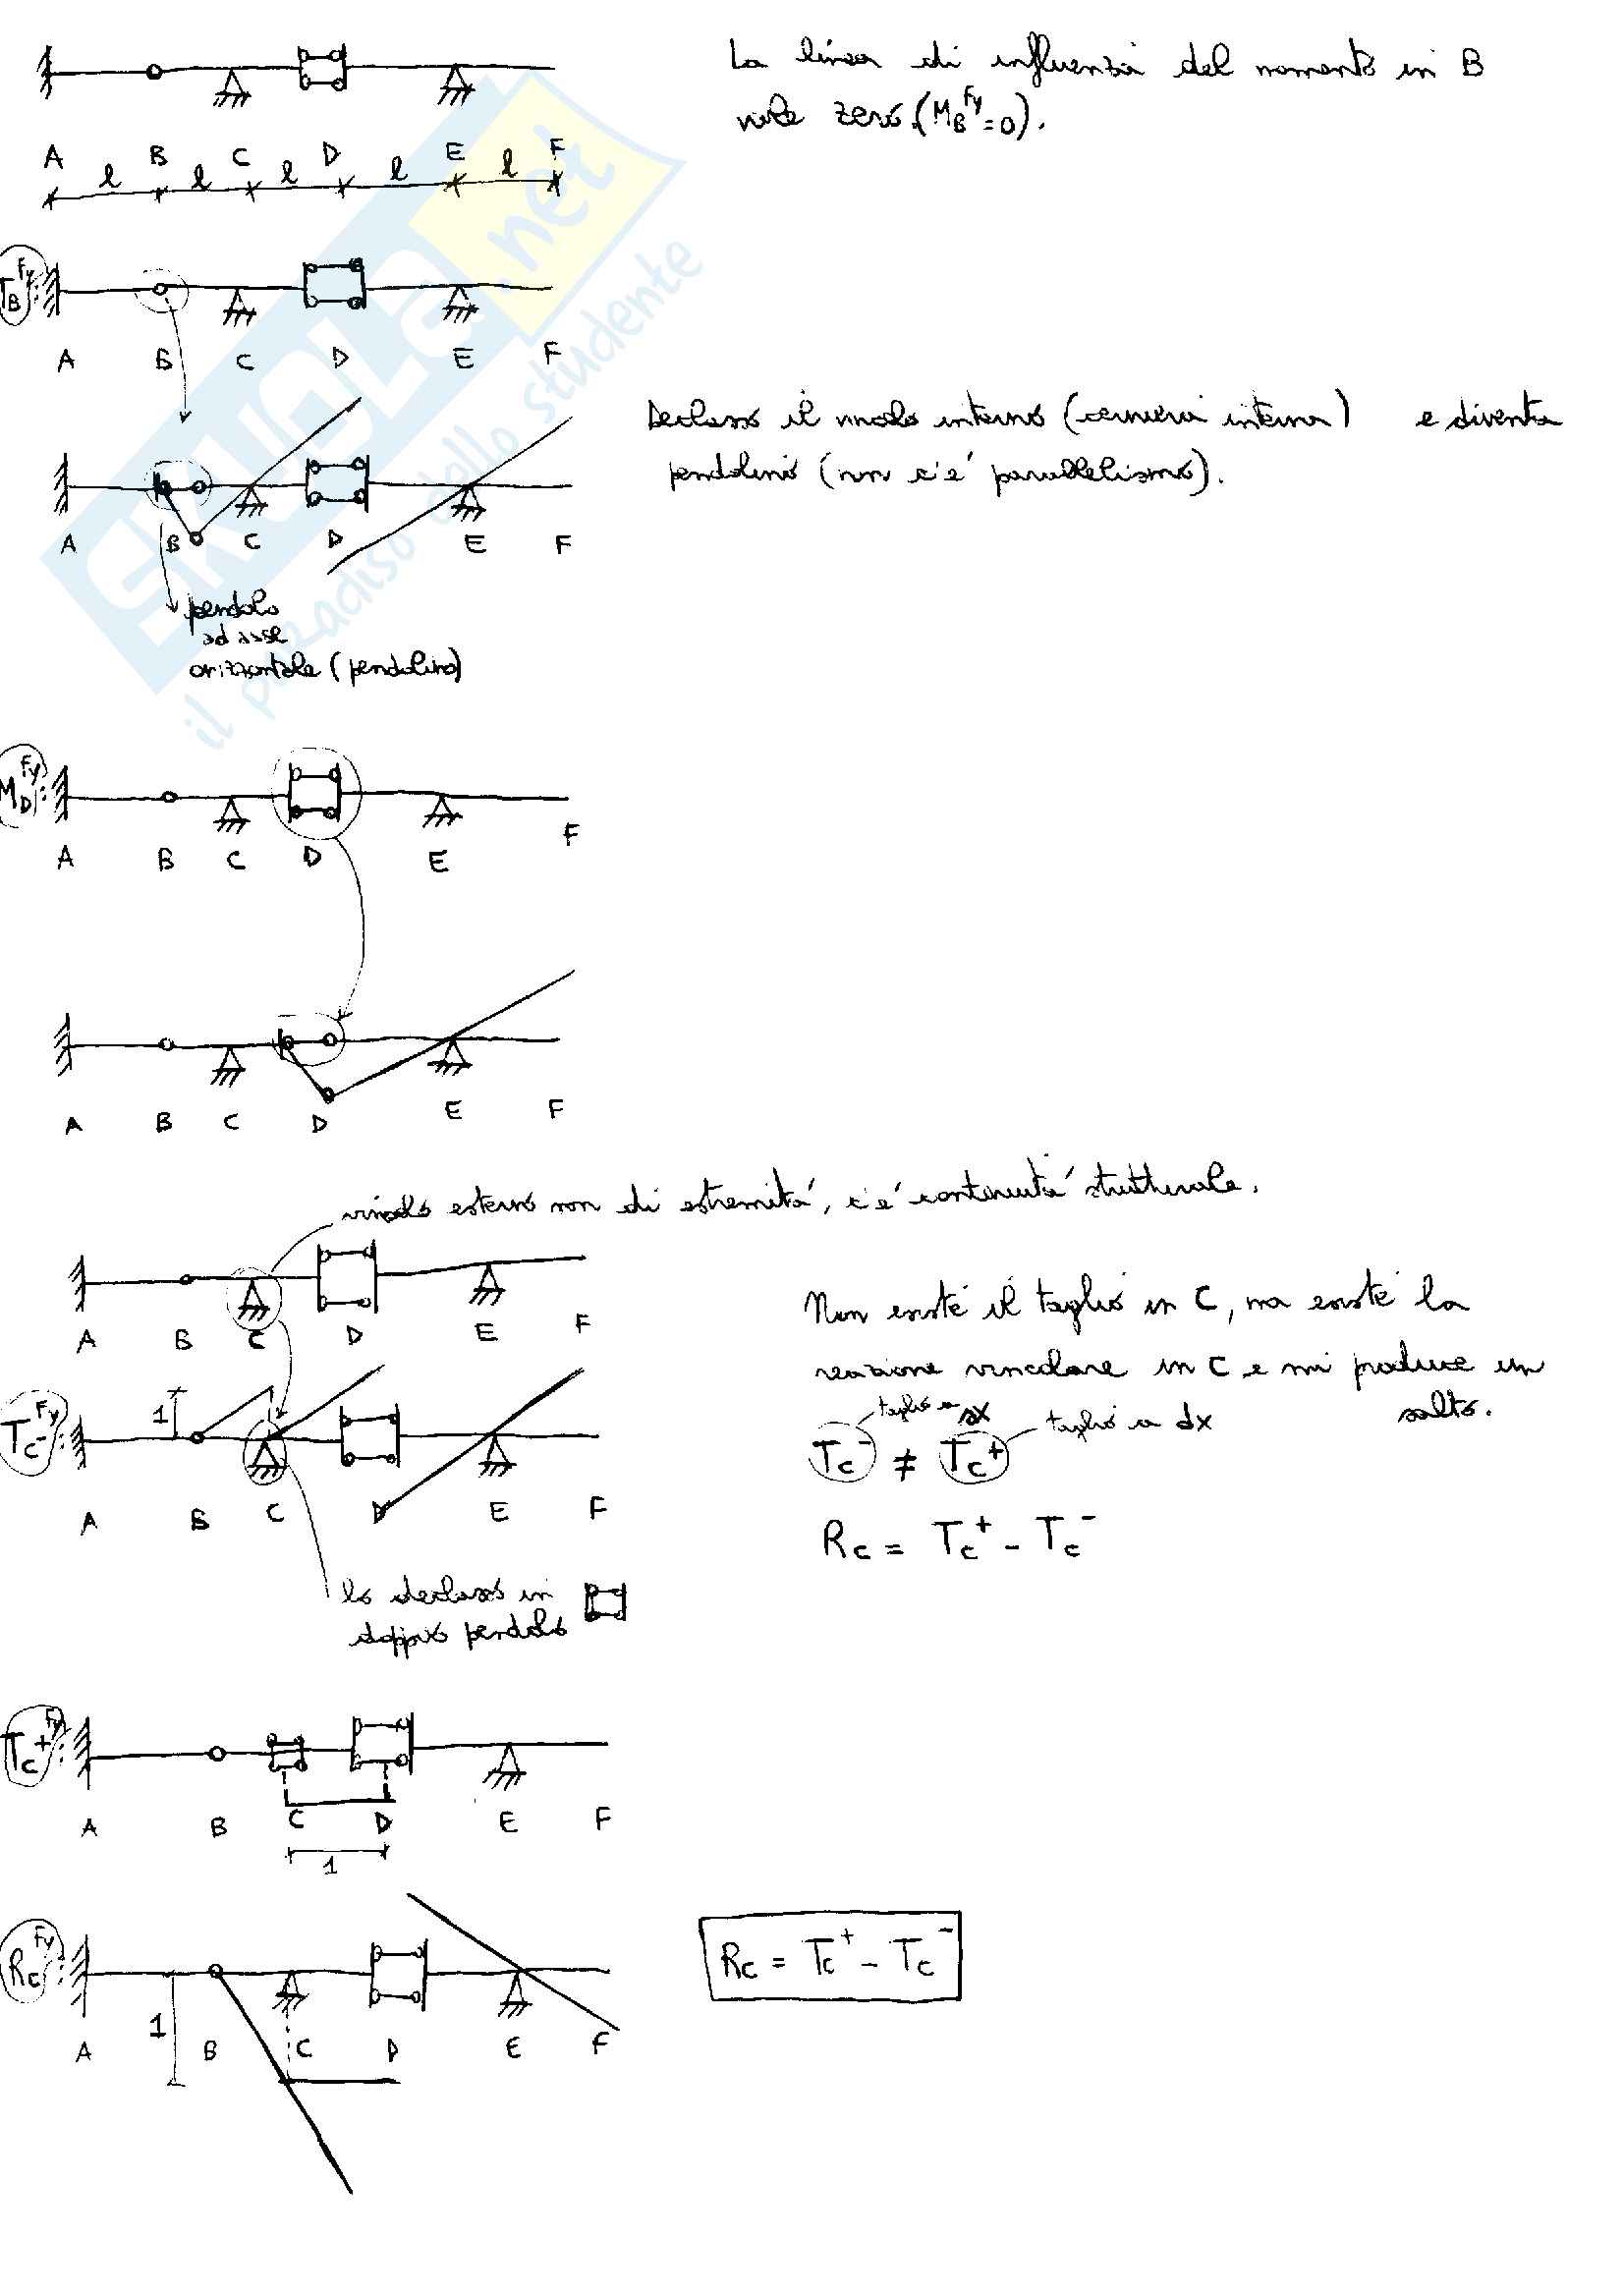 La linea di influenza del momento in B
vale zero (M_B^Fy = 0).
A B C D E F
l l l l l
T_B^Fy:
A B C D E F
Declasso il vincolo interno (cerniera interna) e diventa
pendolino (non c'è parallelismo).
A B C D E F
pendolo
ad asse
orizzontale (pendolino)
M_D^Fy:
A B C D E F
A B C D E F
vincolo esterno non di estremità, c'è continuità strutturale.
A B C D E F
Non esiste il taglio in C, ma esiste la
reazione vincolare in C e mi produce un
salto.
taglio a sx
taglio a dx
T_C^- ≠ T_C^+
R_C = T_C^+ - T_C^-
T_C^-^Fy:
1
A B C D E F
lo declasso in
doppio pendolo
T_C^+^Fy:
A B C D E F
1
R_C^Fy:
1
A B C D E F
R_C = T_C^+ - T_C^-
SKUOLA.net
il paradiso dello studente